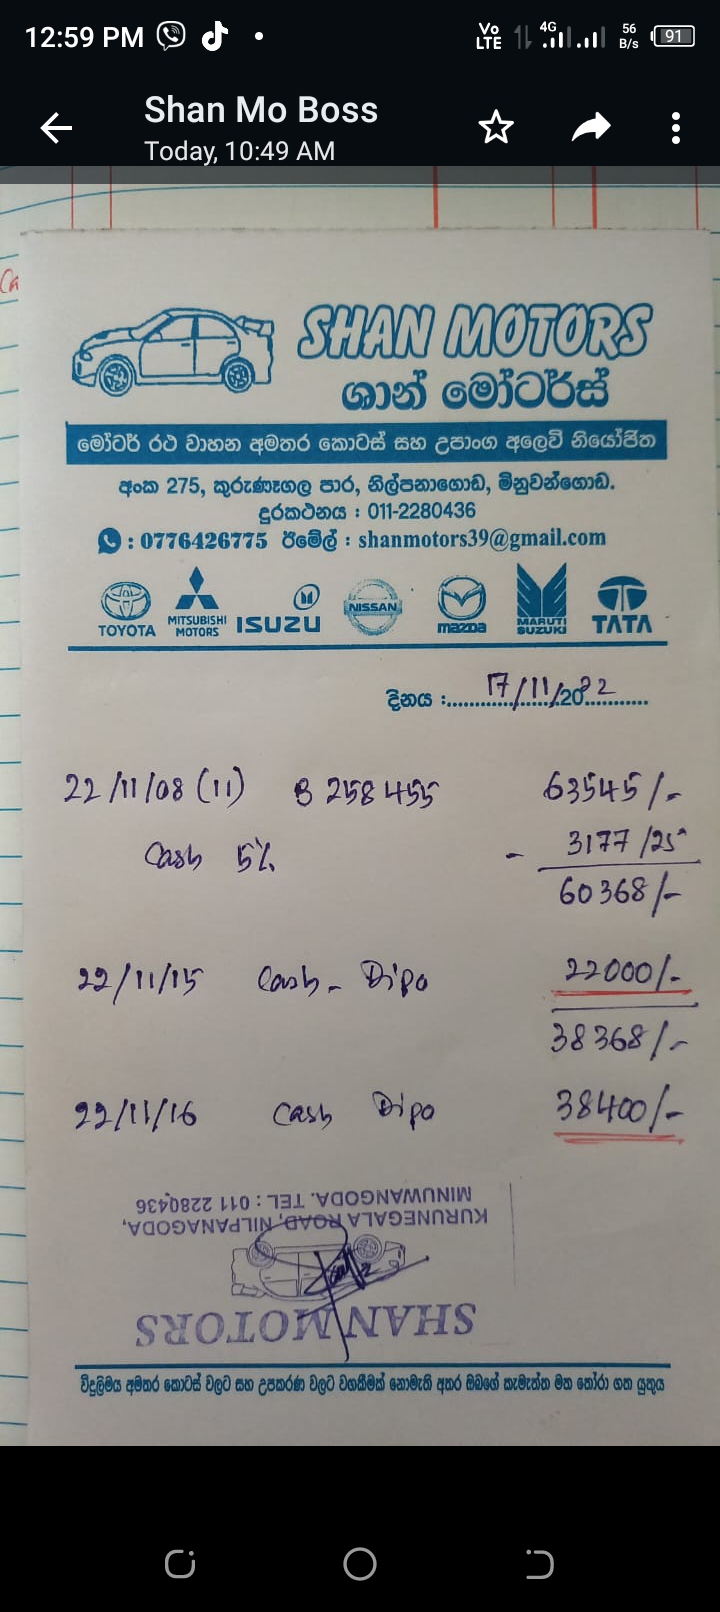 12:59 PM
Vo LTE 4G 56 B/s 91
Shan Mo Boss
Today, 10:49 AM
SHAN MOTORS
ශාන් මෝටර්ස්
මෝටර් රථ වාහන අමතර කොටස් සහ උපාංග අලෙවි නියෝජිත
අංක 275, කුරුණෑගල පාර, නිල්පනාගොඩ, මිනුවන්ගොඩ.
දුරකථනය : 011-2280436
: 0776426775 ඊමේල් : shanmotors39@gmail.com
TOYOTA MITSUBISHI MOTORS ISUZU NISSAN mazda MARUTI SUZUKI TATA
දිනය :............17/11/2022............
22/11/08 (11) B 258455 63545/-
Cash 5% - 3177/25
60368/-
22/11/15 Cash - Dipo 22000/-
38368/-
22/11/16 Cash Dipo 38400/-
SHAN MOTORS
KURUNEGALA ROAD, NILPANAGODA,
MINUWANGODA. TEL : 011 2280436
විදුලිමය අමතර කොටස් වලට සහ උපකරණ වලට වගකීමක් නොමැති අතර ඔබගේ කැමැත්ත මත තෝරා ගත යුතුය